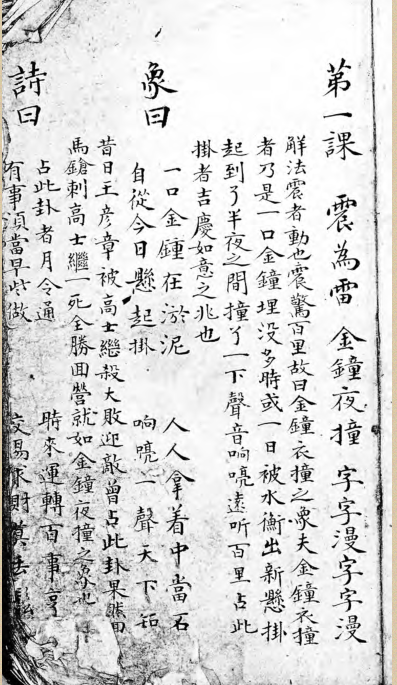 第一課 震為雷 金鐘夜撞 字字漫字字漫
解法震者動也震驚百里故曰金鐘衣撞之象夫金鐘衣撞
者乃是一口金鐘埋没多時或一日被水衝出新懸掛
起到了半夜之間撞了一下聲音响喨遠听百里占此
掛者吉慶如意之兆也
象曰 一口金鍾在淤泥 人人拿着中當石
自從今日懸起掛 响喨一聲天下
昔日王彦章被高士繼殺大敗迎敵曾占此卦果然
馬鎗刺高士繼一死全勝回營就如金鐘夜撞之象也
詩曰 占此卦者月令通 時來運轉百事亨
有事須當早些做 交易求財